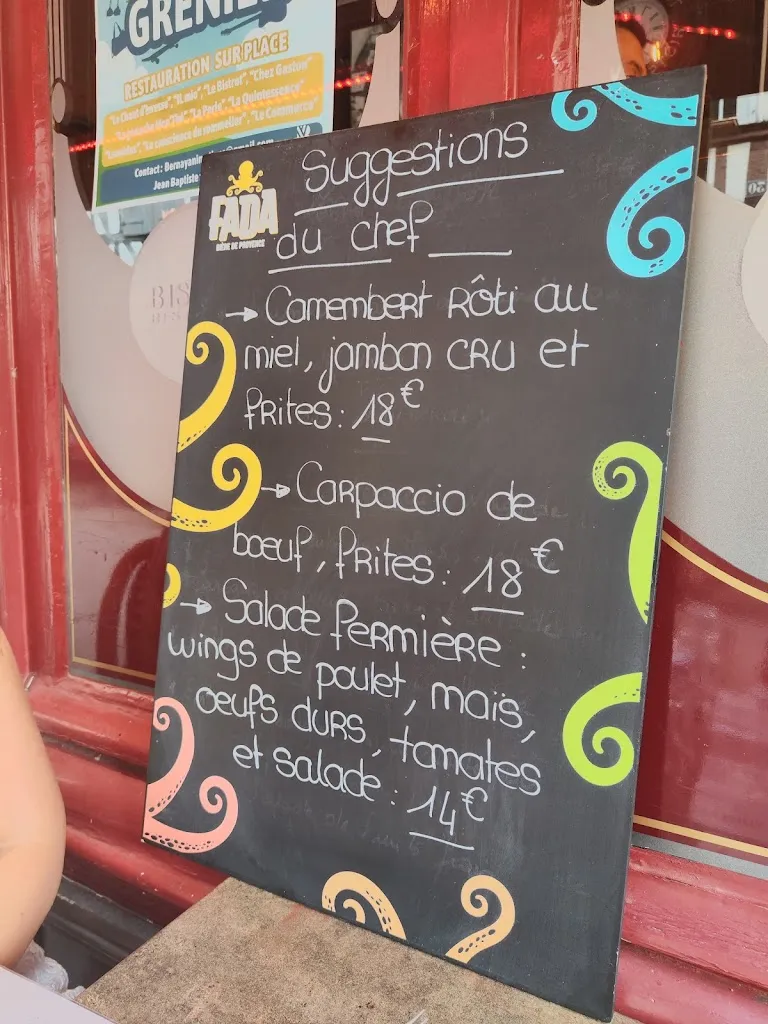 GRENIE
RESTAURATION SUR PLACE
"Le Chant d'messe", "Il mio", "Le Bistrot", "Chez Gaston"
"Le Parle", "La Quintessence"
"Le Commerce"
Contact :
Jean Baptiste
BIS
FADA
BIÈRE DE PROVENCE
Suggestions
du chef
→ Camembert Rôti au
miel, jambon CRU et
frites : 18€
→ Carpaccio de
boeuf, frites : 18€
→ Salade fermière :
wings de poulet, maïs,
oeufs durs, tomates
et salade : 14€